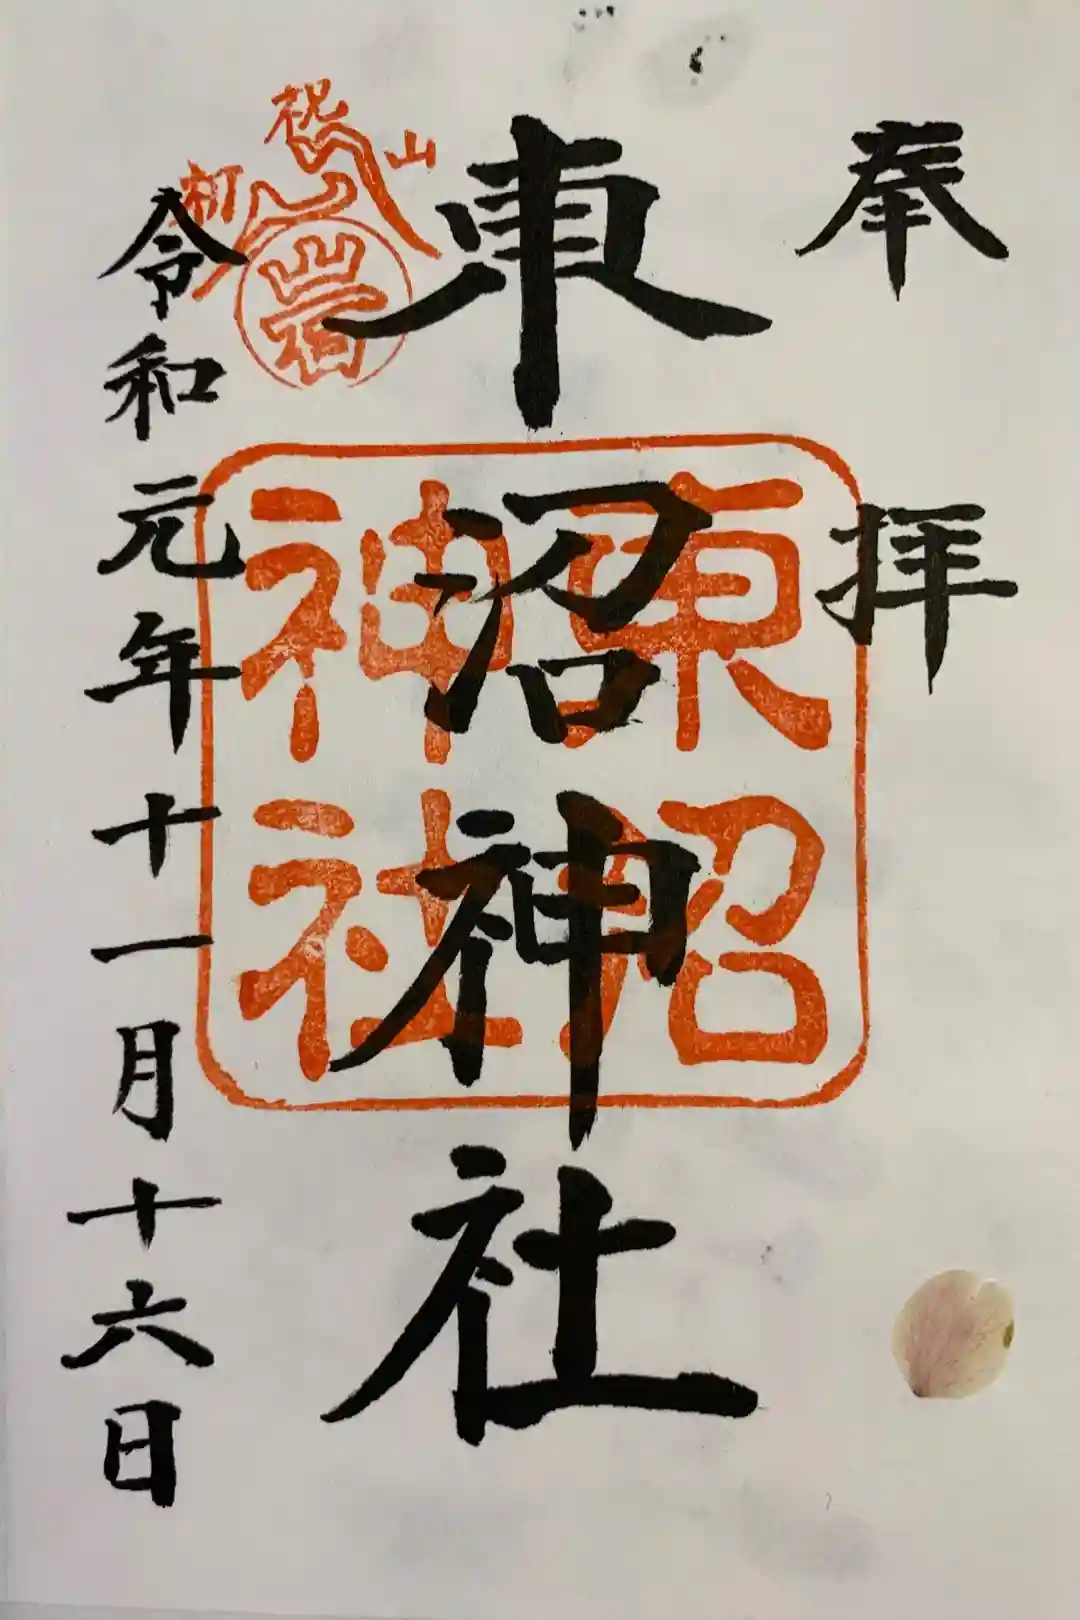 奉拝
東沼神社
東沼神社
祝
山
初
令和元年十一月十六日